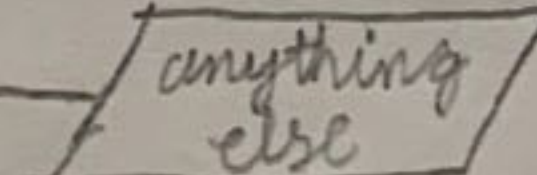 anything
else